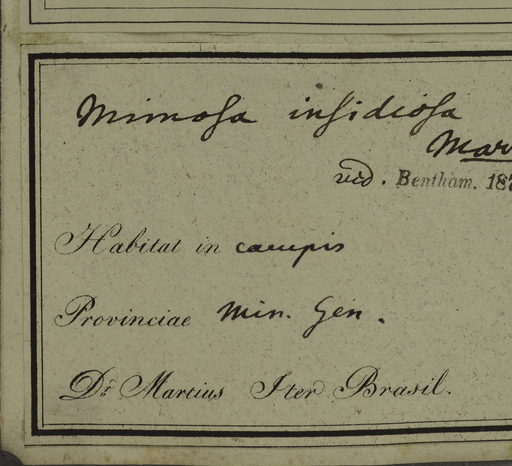 Mimosa insidiosa
Mar
vid. Bentham. 187
Habitat in campis
Provinciae Min. Gen.
Dr Martius Iter Brasil.